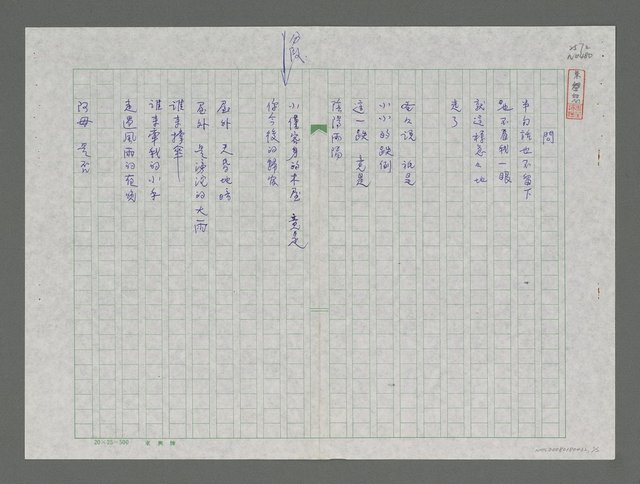 問
半句話也不留下
也不看我一眼
就這樣急々地
走了
有人說 祇是
小小的跌倒
這一跌 竟是
陰陽兩隔
分段
小僅容身的木屋 竟是
你今後的歸宿
屋外 天昏地暗
屋外 是滂沱的大雨
誰來撐傘
誰來牽我的小手
走過風雨的夜晚
阿母 是否
20×25=500